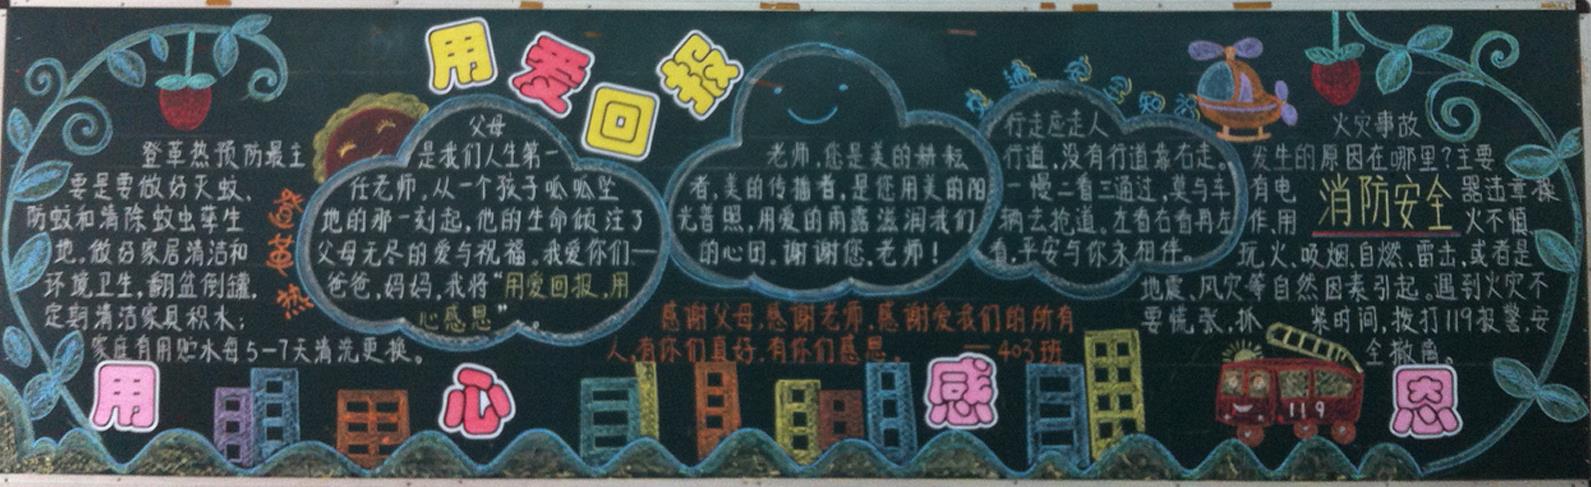 用爱回报
登革热
登革热预防最主
要是要做好灭蚊、
防蚊和清除蚊虫孳生
地。做好家居清洁和
环境卫生，翻盆倒罐，
定期清洁家具积水；
家庭有用贮水每5-7天清洗更换。
父母
是我们人生第一
任老师，从一个孩子呱呱坠
地的那一刻起，他的生命倾注了
父母无尽的爱与祝福。我爱你们—
爸爸，妈妈，我将“用爱回报，用
心感恩”。
老师，您是美的耕耘
者，美的传播者，是您用美的阳
光普照，用爱的雨露滋润我们
的心田。谢谢您，老师！
感谢父母，感谢老师，感谢爱我们的所有
人，有你们真好，有你们感恩。 —403班
交通安全知识
行走应走人
行道，没有行道靠右走。
一慢二看三通过，莫与车
辆去抢道。左看右看再左
看，平安与你永相伴。
消防安全
火灾事故
发生的原因在哪里？主要
有电器违章操
作、用火不慎、
玩火、吸烟、自燃、雷击，或者是
地震、风灾等自然因素引起。遇到火灾不
要慌张，抓紧时间，拨打119报警，安
全撤离。
119
用心感恩